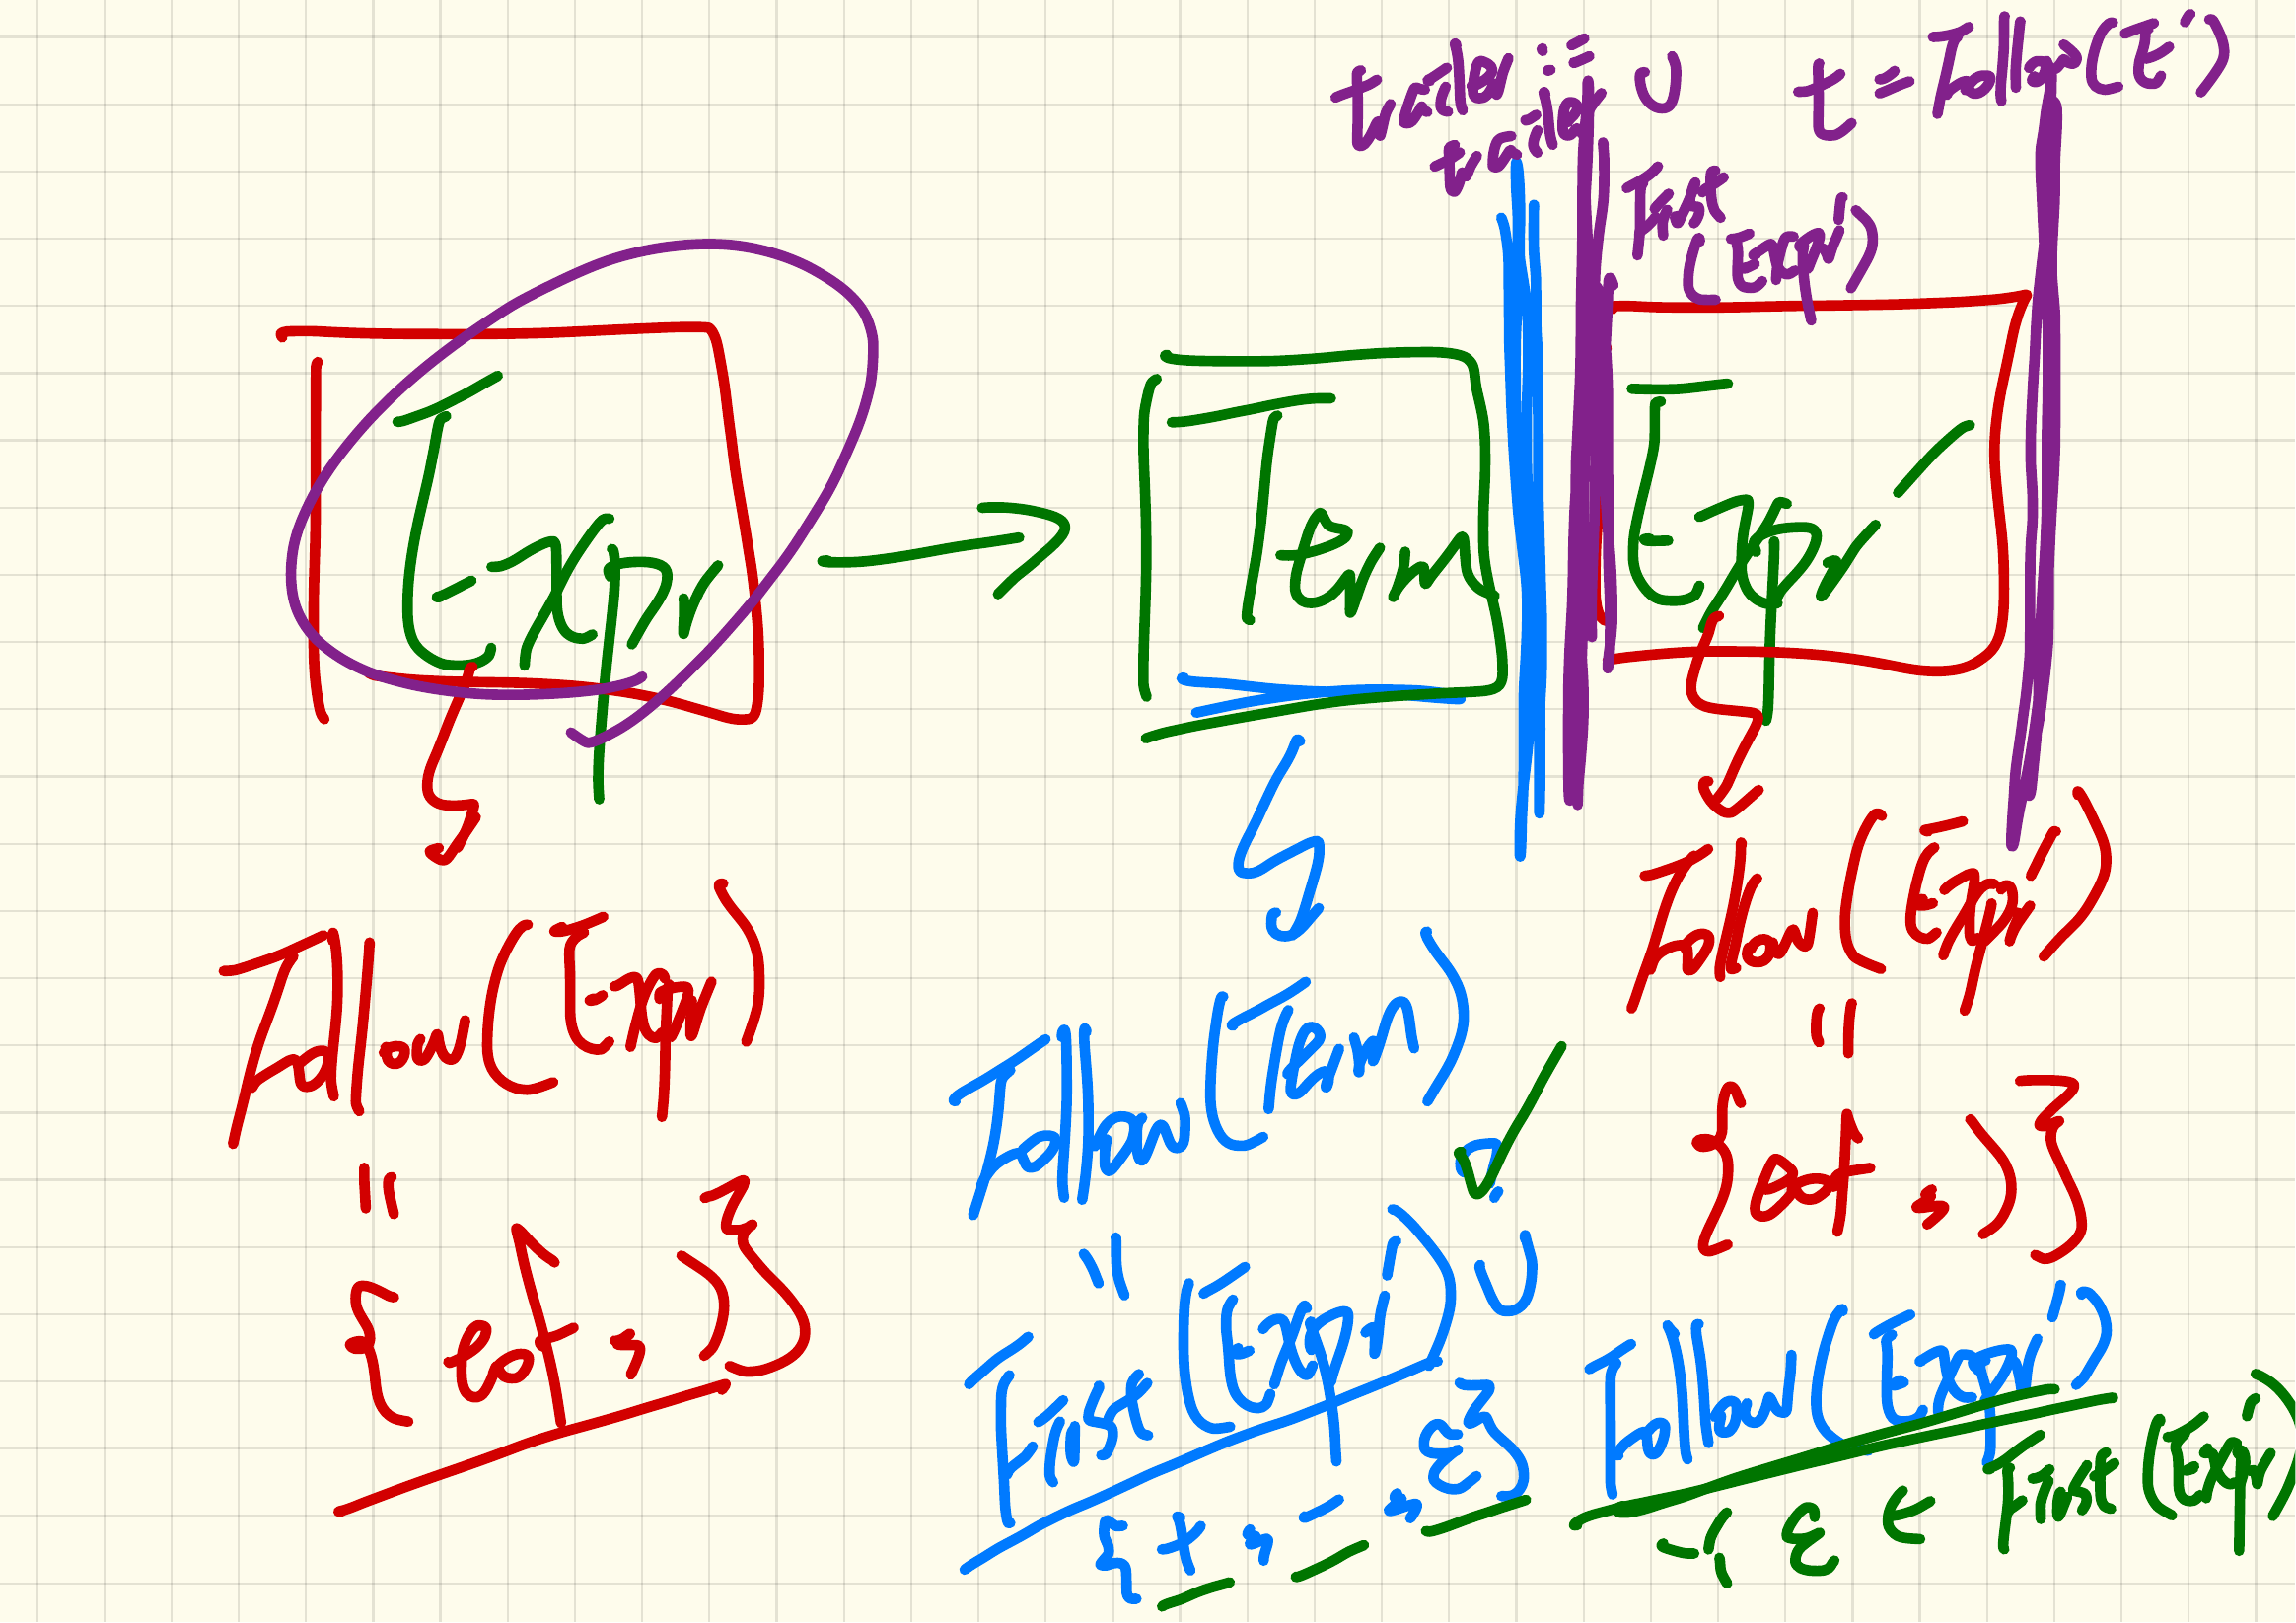 trailer := trailer ∪ First(Expr')
t = Follow(E')
Expr → Term Expr'
Follow(Expr)
=
{eof, )}
Follow(Term)
=
First(Expr') ∪ Follow(Expr')
{+, -, ε}
ε ∈ First(Expr')
Follow(Expr')
=
{eof, )}